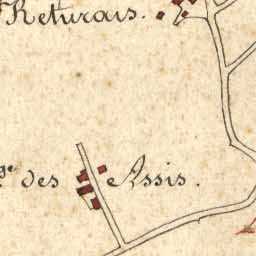 Returais.
ge des Assis.